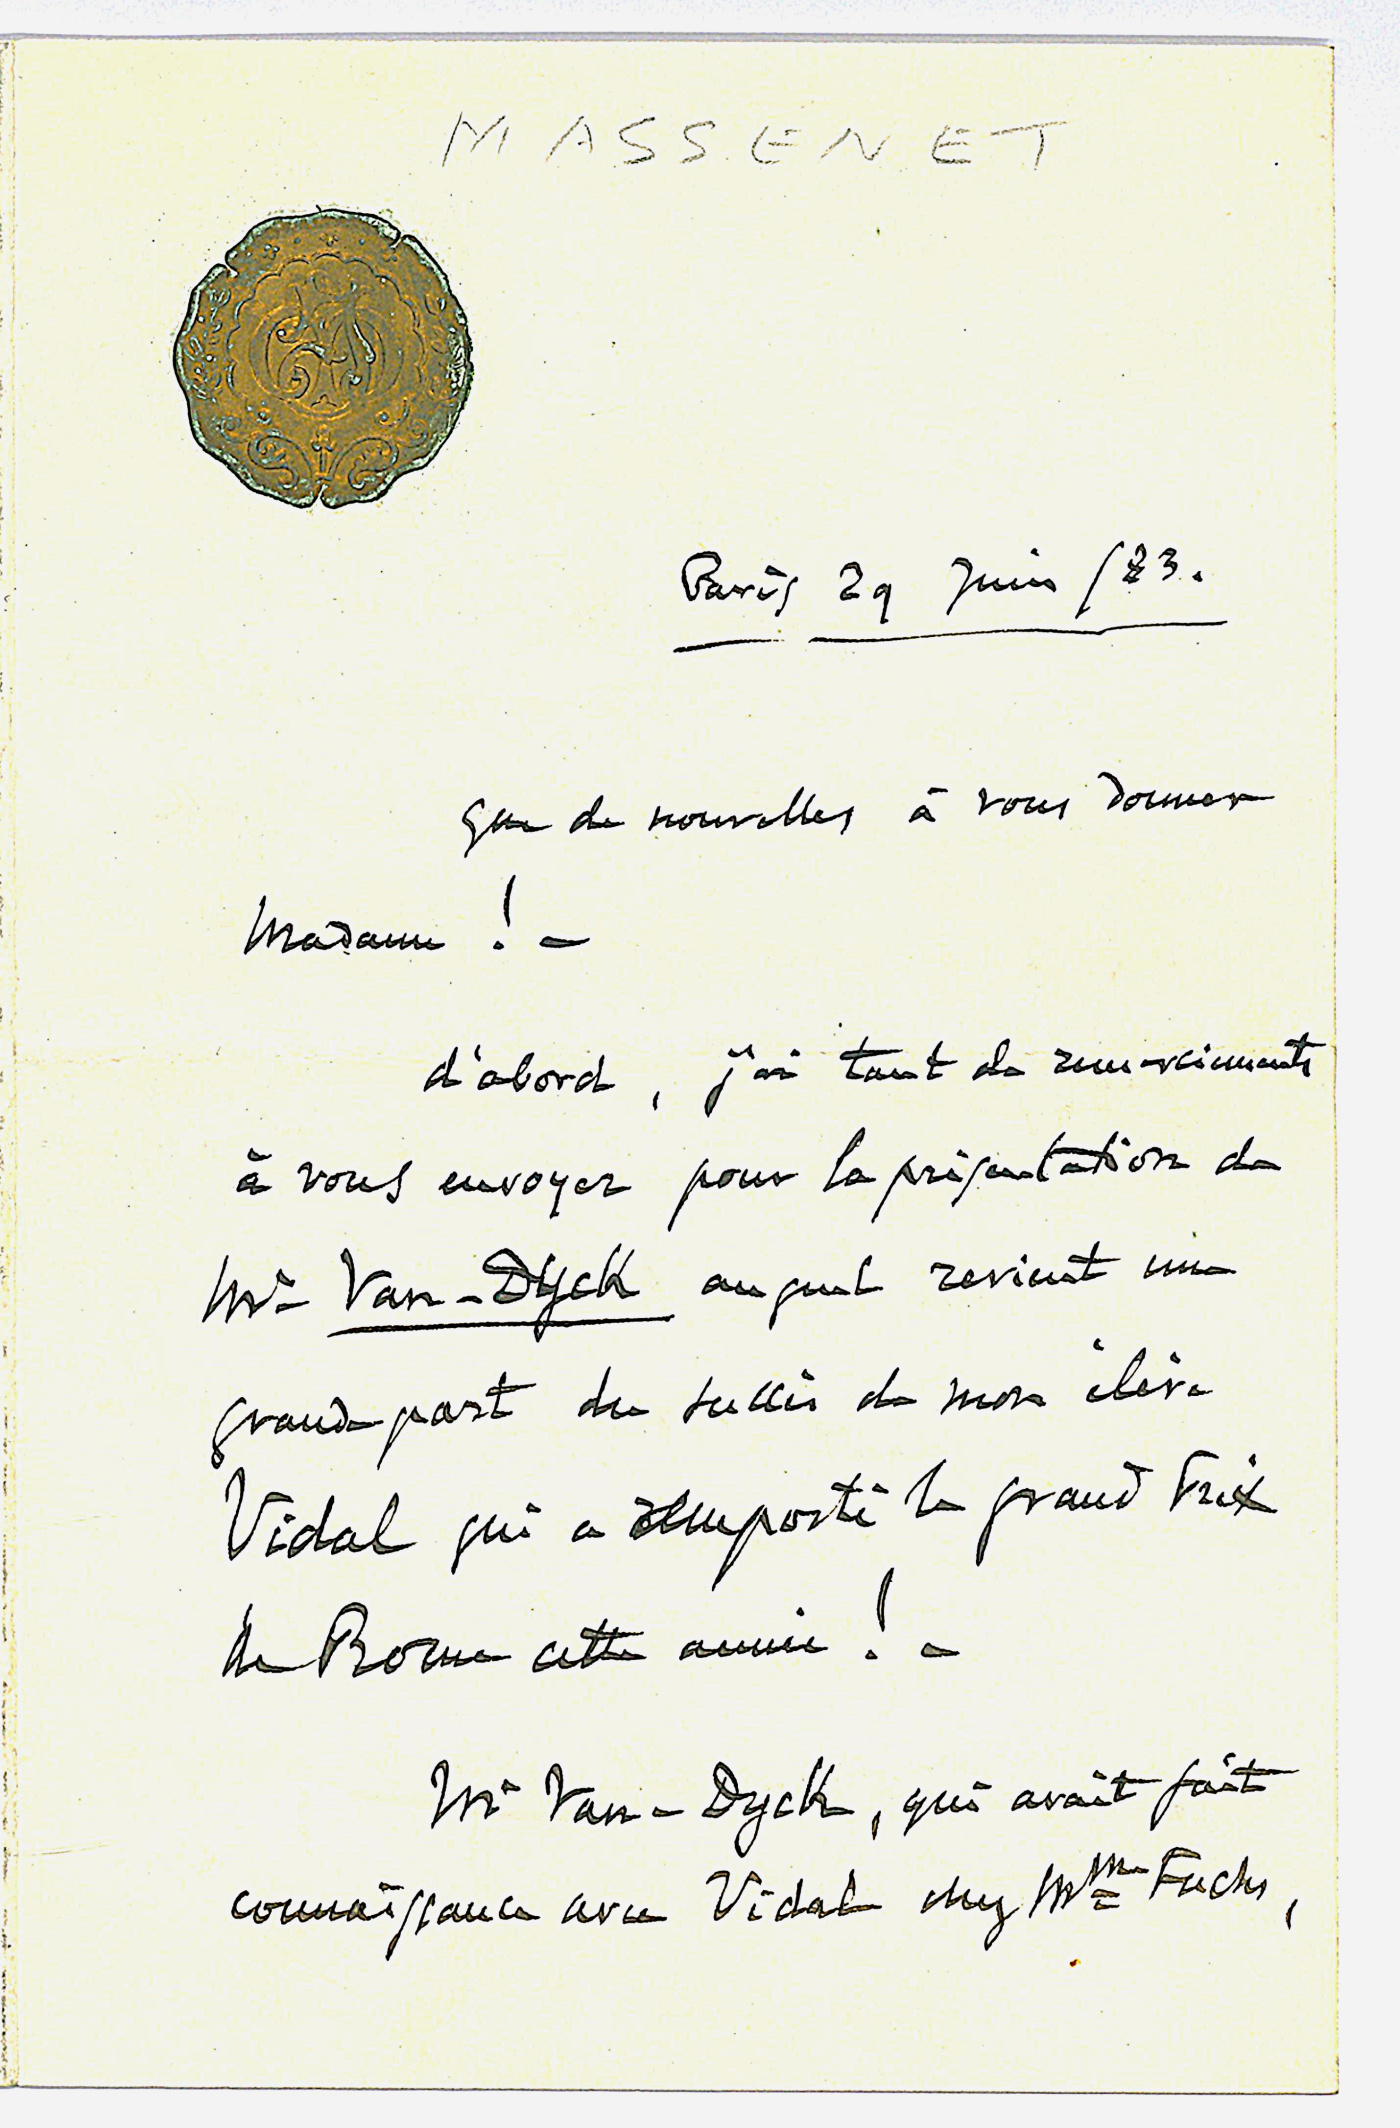 MASSENET
Paris 29 Juin /83.
Que de nouvelles à vous donner
Madame ! –
d'abord, j'ai tant de remerciements
à vous envoyer pour la présentation de
Mr Van-Dyck auquel revient une
grande part du succès de mon élève
Vidal qui a remporté le grand Prix
de Rome cette année ! –
Mr Van-Dyck, qui avait fait
connaissance avec Vidal chez Mme Fuchs,